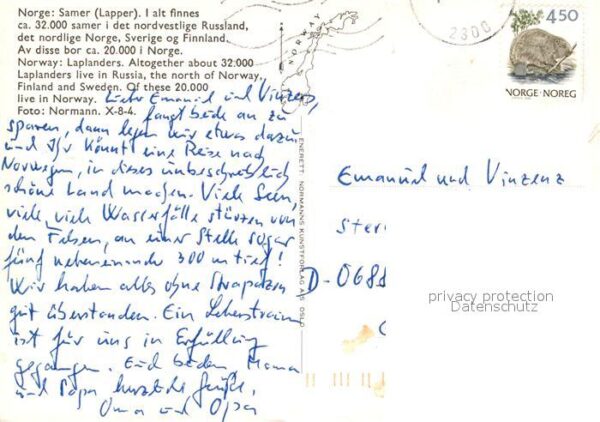 Norge: Samer (Lapper). I alt finnes
ca. 32.000 samer i det nordvestlige Russland,
det nordlige Norge, Sverige og Finnland.
Av disse bor ca. 20.000 i Norge.
Norway: Laplanders. Altogether about 32.000
Laplanders live in Russia, the north of Norway,
Finland and Sweden. Of these 20.000
live in Norway.
Foto: Normann. X-8-4.
Liebe Emanuel und Vinzenz,
fangt beide an zu
sparen, dann legen wir etwas dazu
und Ihr könnt eine Reise nach
Norwegen, in dieses unbeschreiblich
schöne Land machen. Viele Seen,
viele, viele Wasserfälle stürzen von
den Felsen, an einer Stelle sogar
fünf nebeneinander 300 m tief!
Wir haben alles ohne Strapazen
gut überstanden. Ein Lebenstraum
ist für uns in Erfüllung
gegangen. Euch beiden, Mama
und Papa herzliche Grüße,
Oma und Opa
NORWAY
ENERETT: NORMANNS KUNSTFORLAG A/S, OSLO
2800
450
NORGE · NOREG
Emanuel und Vinzenz
D-068
privacy protection
Datenschutz